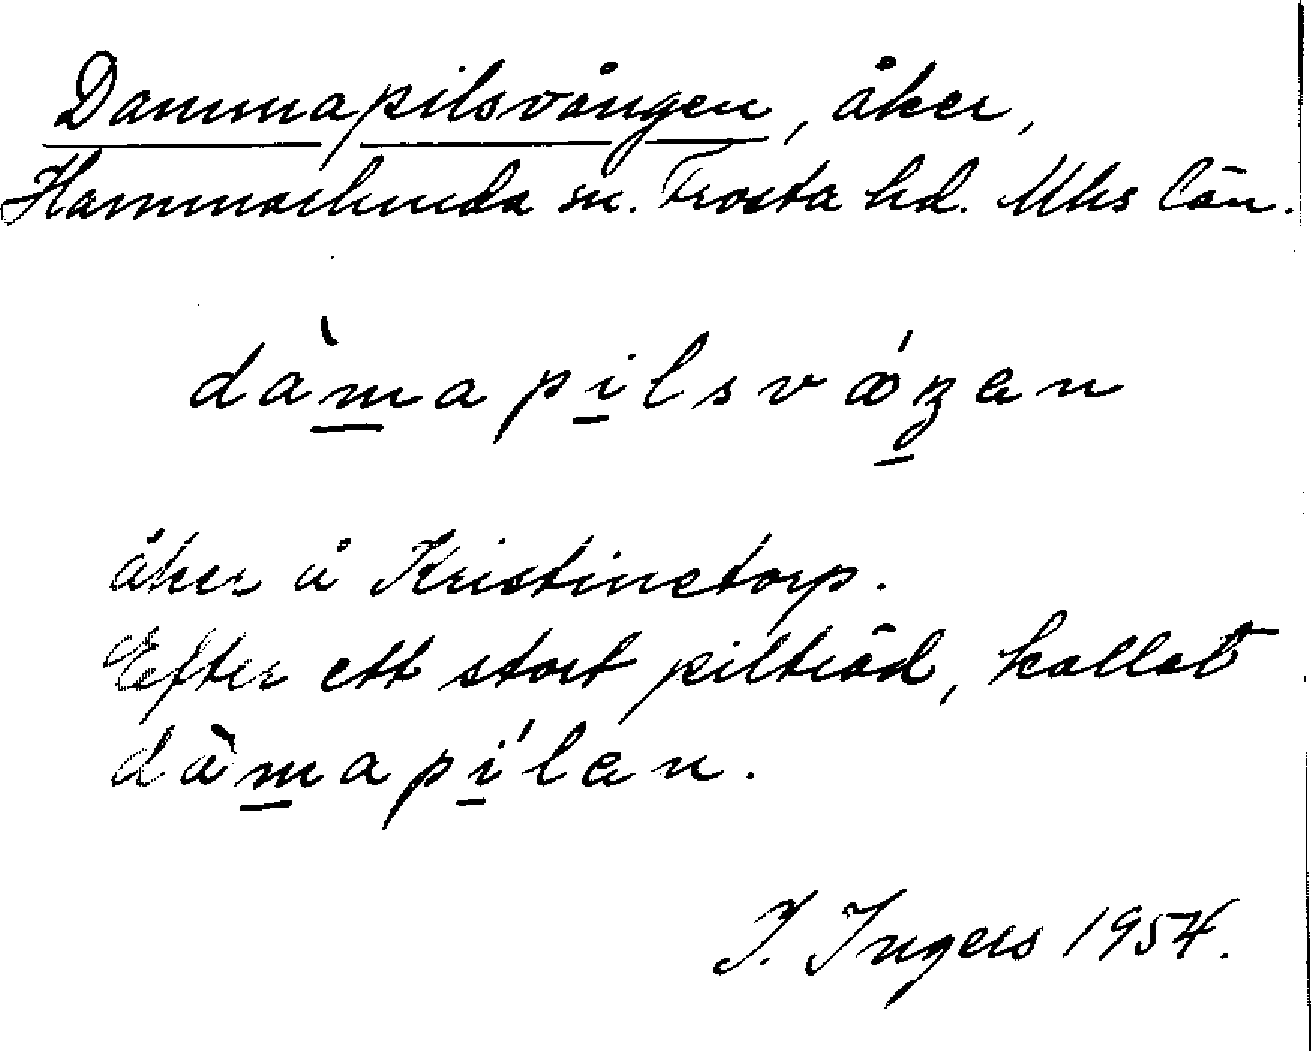 Dammapilsvången, åker,
Hammarlunda sn. Frosta hd. Mhs län.
dàmapilsvǻŋen
åker å Kristinetorp.
Efter ett stort pilträd, kallat
dàmapílen.
I. Ingers 1954.